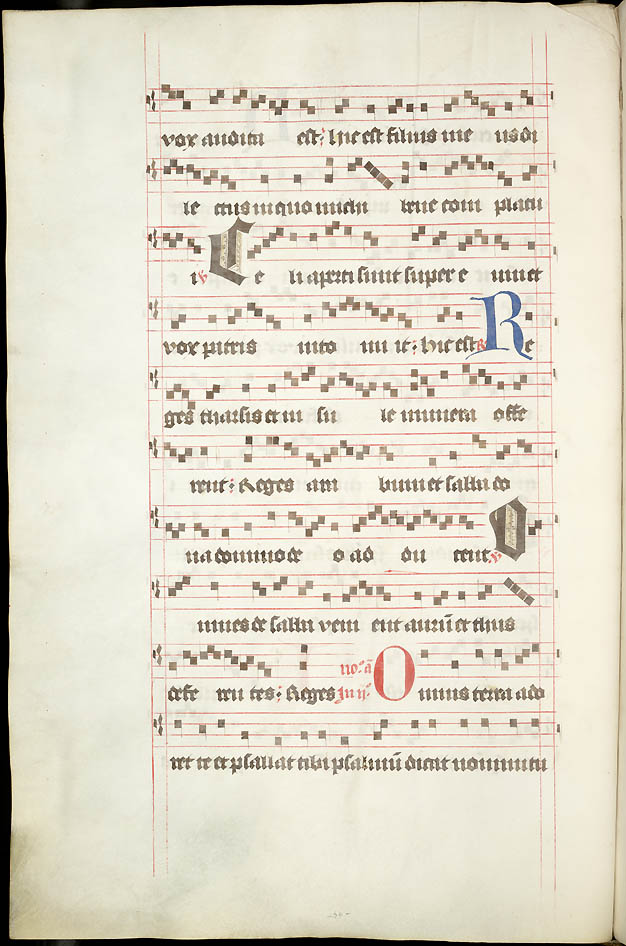 vox audita est : hic est filius me us di
le ctus in quo michi bene com placu
i ℣ Ce li aperti sunt super e um et
vox patris into nu it : hic est ℟ Re
ges tharsis et in su le munera offe
rent : Reges ara bum et saba do
na domino de o ad du cent ℣ O
mnes de saba veni ent aurū et thus
defe ren tes : Reges In ij° no. ā Omnis terra ado
ret te et psallat tibi psalmū dicat nomini tu